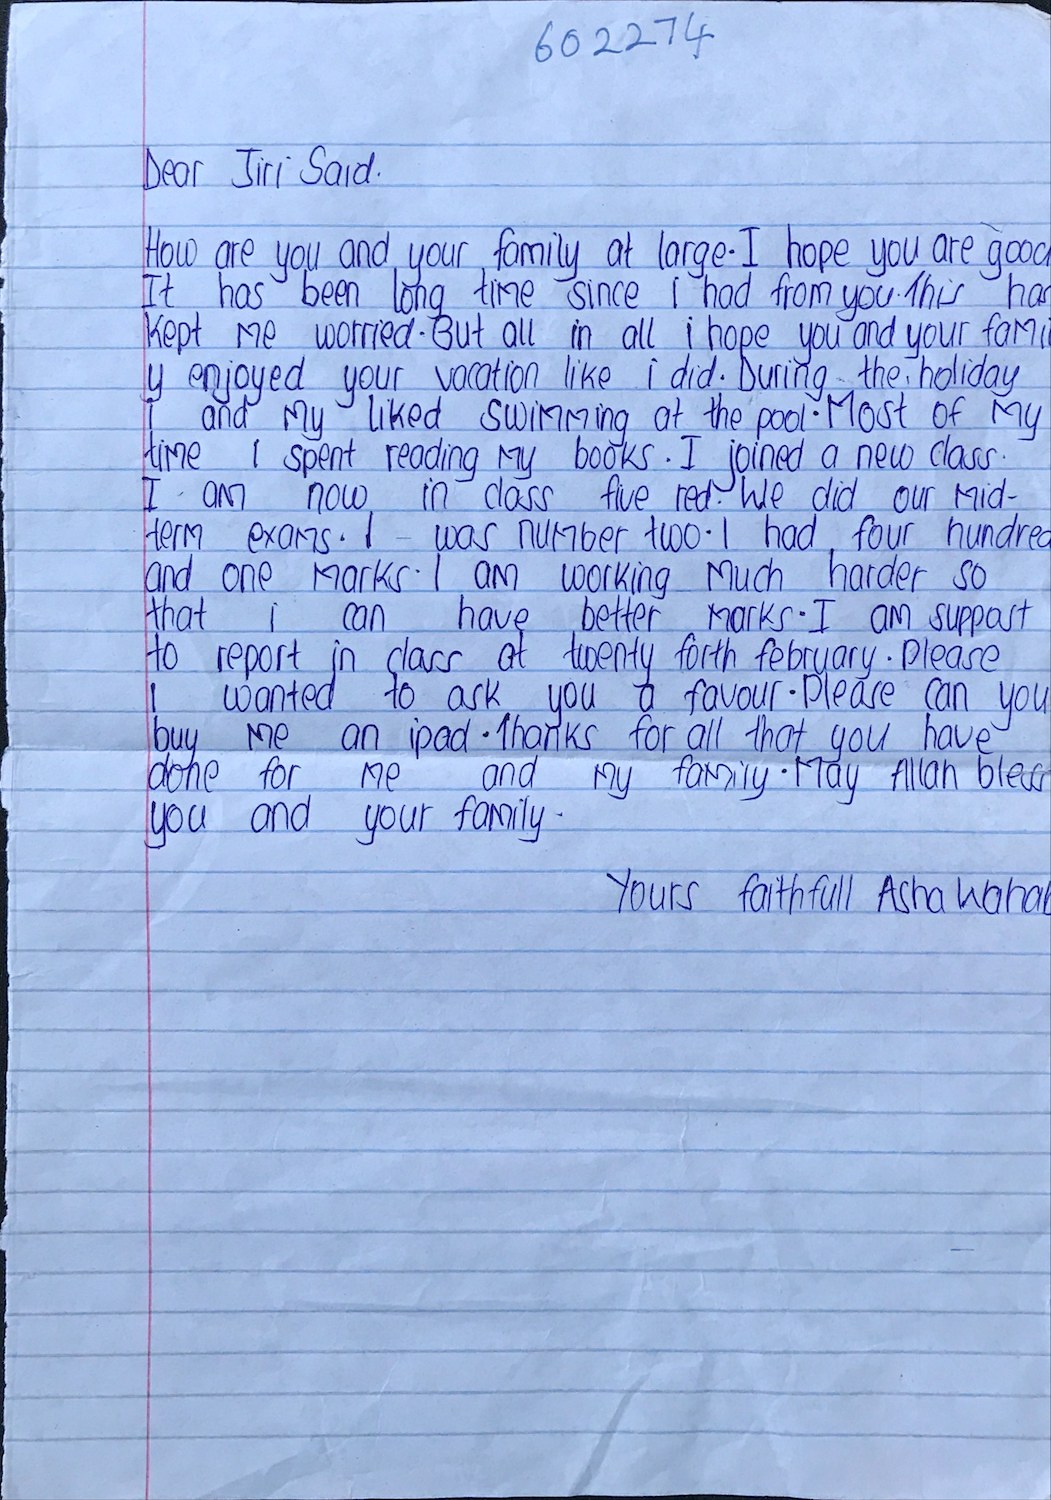 602274
Dear Jiri Said.
How are you and your family at large. I hope you are good
It has been long time since i had from you. This has
kept me worried. But all in all i hope you and your famil
y enjoyed your vacation like i did. During the holiday
I and my liked swimming at the pool. Most of my
time I spent reading my books. I joined a new class.
I am now in class five red. We did our mid-
term exams. I was number two. I had four hundred
and one marks. I am working much harder so
that i can have better marks. I am suppost
to report in class at twenty forth february. Please
I wanted to ask you a favour. Please can you
buy me an ipad. Thanks for all that you have
done for me and my family. May Allah bless
you and your family.
Yours faithfull Asha Wahab